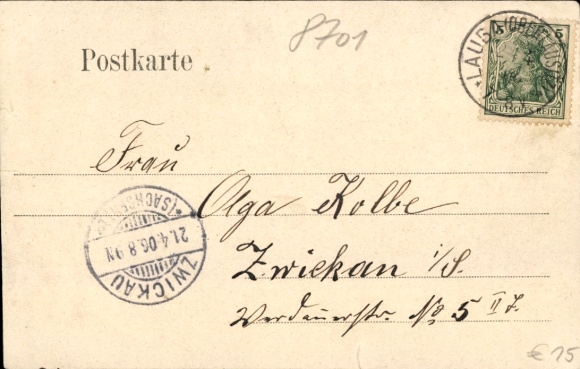 8701
Postkarte
5 5
DEUTSCHES REICH
Frau
Olga Kolbe
Zwickau i/S.
Werdauerstr. No 5 II
ZWICKAU
(SACHSEN)
21.4.06.8-9N
€ 15